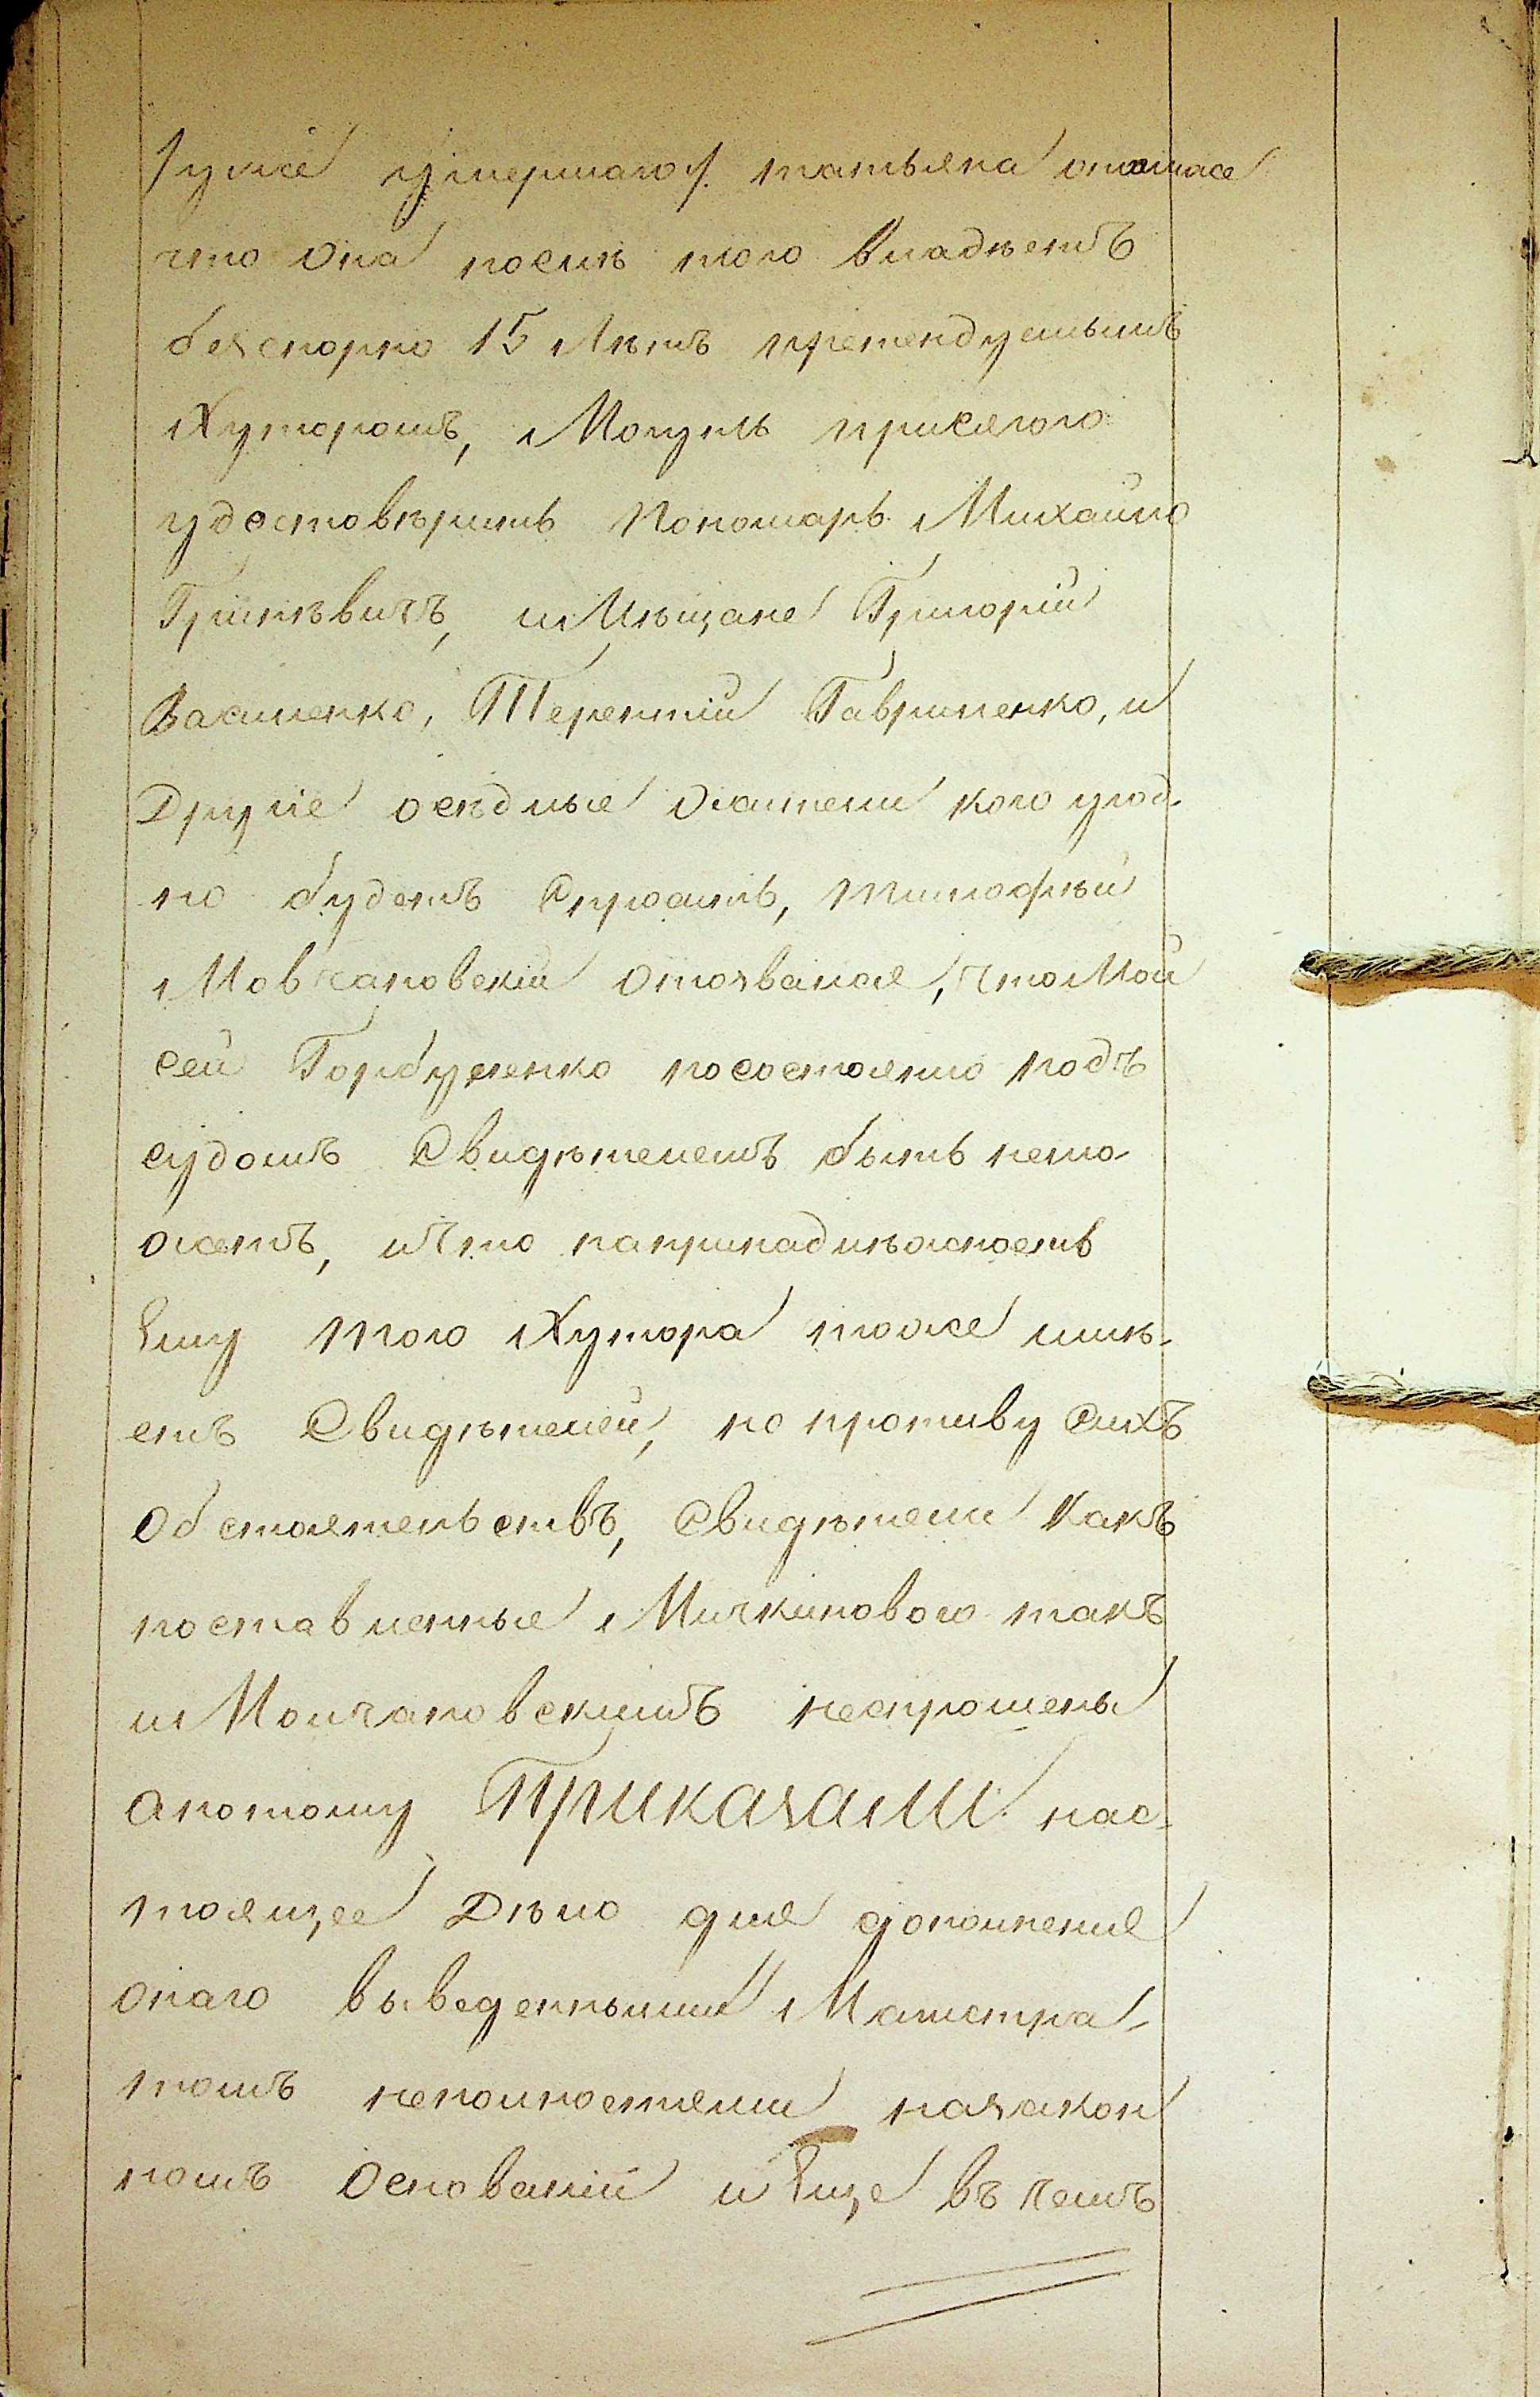 /уже умершаго/. татьяна
что Она послѣ того владѣетъ
безспорно 15 Лѣтъ претендуемымъ
Хуторомъ, Могутъ присягою
удостовѣрить Пономарь Михайло
Гринѣвичъ, и Мѣщане Григорій
Василенко, Терентій Гавриленко, и
Другіе осѣдлые жители кого угод-
но будетъ Спросить, тимофѣй
Мовчановскій Отозвался, что Мой
сей Горбуленко посостоянію подъ
судомъ Свидѣтелемъ быть немо-
жетъ, ичто напринадлѣжность
Ему того Хутора тоже имѣ-
етъ Свидѣтелей, но противу Сихъ
Обстоятельствъ, Свидѣтели Какъ
поставленные Мичкиновою такъ
и Молчановскимъ неспрошены
апотому Приказали нас-
тоящее Дѣло для дополненія
онаго выведенными Магистра-
томъ неполностями назакон
номъ Основаніи и Еще въ чемъ